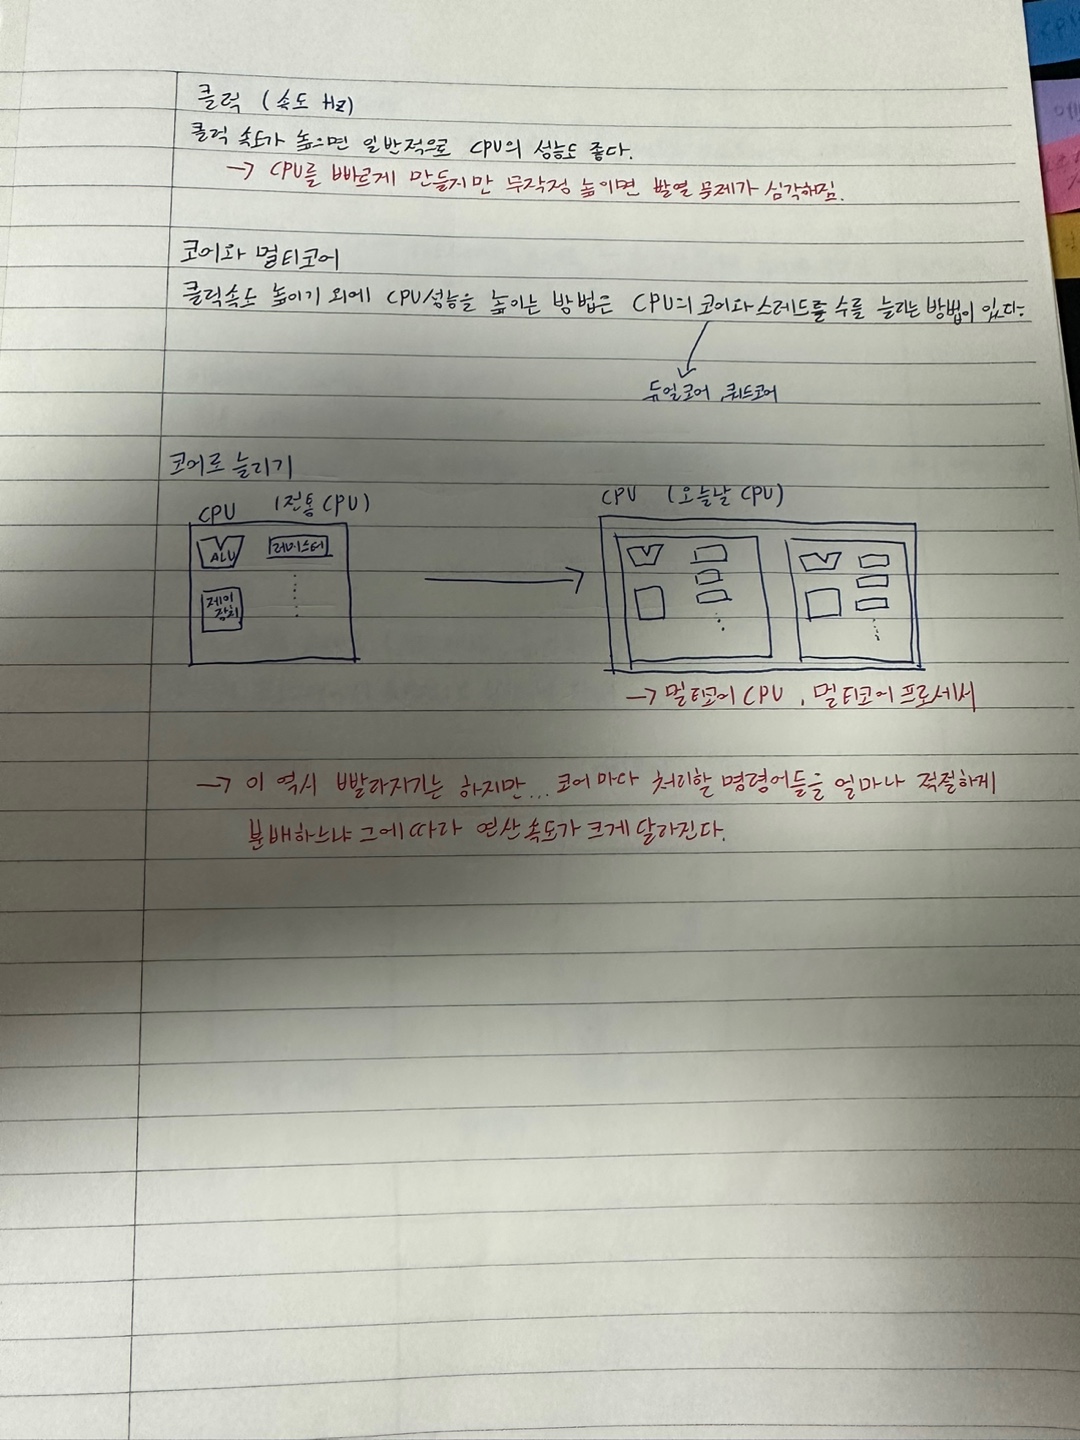 클럭 (속도 Hz)
클럭 속도가 높으면 일반적으로 CPU의 성능도 좋다.
→ CPU를 빠르게 만들지만 무작정 높이면 발열 문제가 심각해짐.
코어와 멀티코어
클럭속도 높이기 외에 CPU성능을 높이는 방법은 CPU의 코어와 스레드를 수를 늘리는 방법이 있다.
듀얼코어, 쿼드코어
코어로 늘리기
CPU (전통 CPU)
ALU 레지스터
제어
장치
CPU (오늘날 CPU)
→ 멀티코어 CPU, 멀티코어 프로세서
→ 이 역시 빨라지기는 하지만... 코어마다 처리할 명령어들을 얼마나 적절하게
분배하느냐 그에 따라 연산속도가 크게 달라진다.